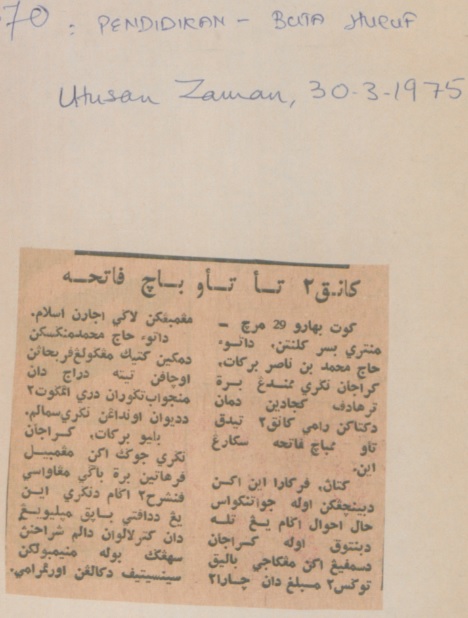 70 : PENDIDIKAN - BUTA HURUF
Utusan Zaman, 30-3-1975
كانق٢ تأ تأو باچ فاتحه
كوت بهارو 29 مرچ —
منتري بسر كلنتن، داتوء
حاج محمد بن ناصر بركات،
كراجان نڬري ممندڠ برة
ترهادف كجادين دمان
دكتاكن رامي كانق٢ تيدق
تاو ممباچ فاتحه سكارڠ
اين.
كتاڽ، فركارا اين اكن
دبينچڠكن اوله جواتنكواس
حال احوال اڬام يڠ تله
دبنتوق اوله كراجان
دسمفيڠ اكن مڠكاجي باليق
توڬس٢ مبلغ دان چارا٢
مڠمبڠكن لاڬي اجارن اسلام.
داتوء حاج محمد منڬسكن
دمكين كتيك مڠڬولوڠ فربحاثن
اوچافن تيته دراج دان
منجواب تڬوران دري اڠڬوت٢
دديوان اوندڠن نڬري سمالم.
بليو بركات، كراجان
نڬري جوڬ اكن مڠمبيل
فرهاتين برة باڬي مڠاواسي
فنشرح٢ اڬام دنڬري اين
يڠ ددافتي باڽق ميليوڠ
دان كترلالوان دالم شراحنڽ
سهڠڬ بوله منيمبولكن
سينسيتيف دكالڠن اورڠرامي.